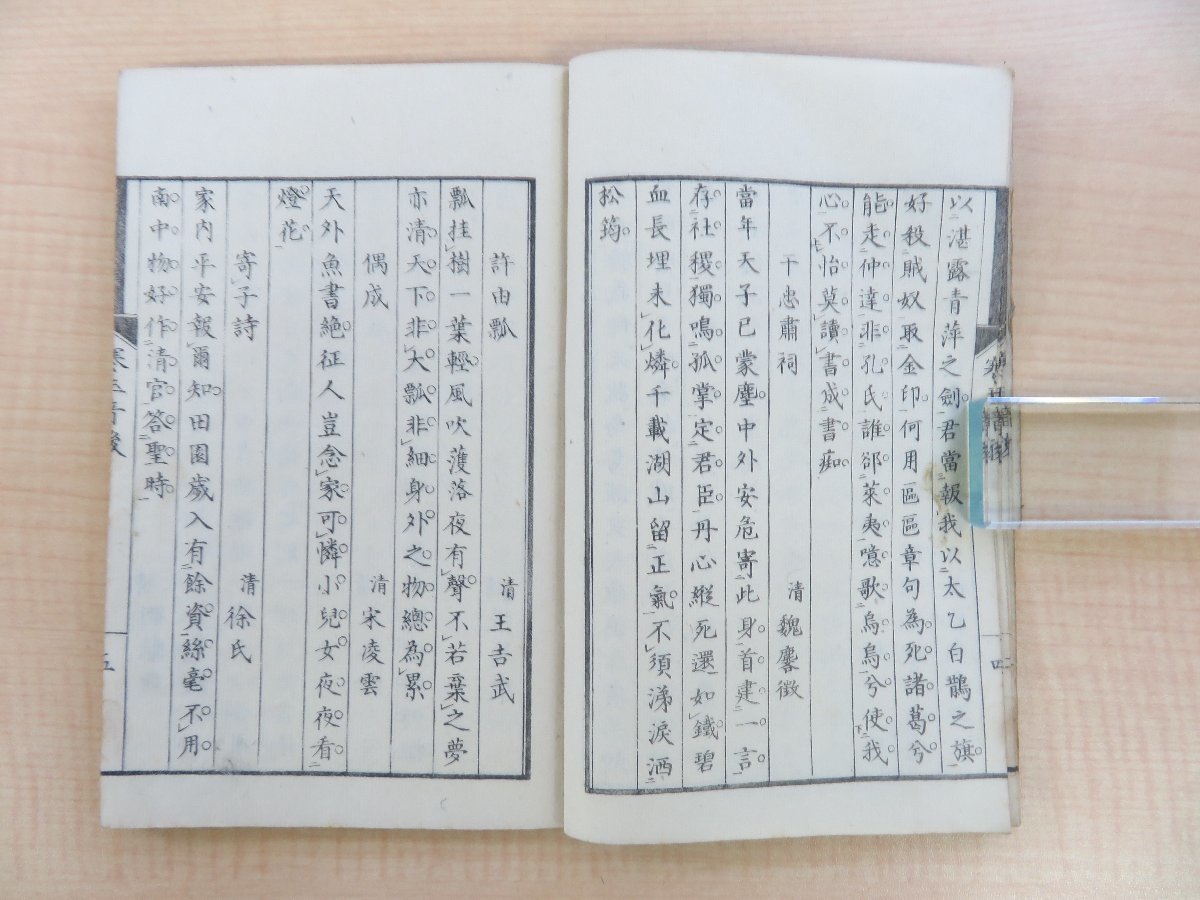 以湛露青萍之劍君當報我以太乙白鵲之旗
好殺賊奴取金印何用區區章句為死諸葛兮
能走仲達非孔氏誰郤萊夷噫歌烏烏兮使我
心不怡莫讀書成書痴
于忠肅祠 清 魏麐徵
當年天子已蒙塵中外安危寄此身首建一言
存社稷獨鳴孤掌定君臣丹心縱死還如鐵碧
血長埋未化燐千載湖山留正氣不須涕淚洒
松筠
四
許由瓢 清 王吉武
瓢挂樹一葉輕風吹濩落夜有聲不若棄之夢
亦清天下非大瓢非細身外之物總為累
偶成 清 宋凌雲
天外魚書絕征人豈念家可憐小兒女夜夜看
燈花
寄子詩 清 徐氏
家內平安報爾知田園歲入有餘資絲毫不用
南中物好作清官答聖時
五